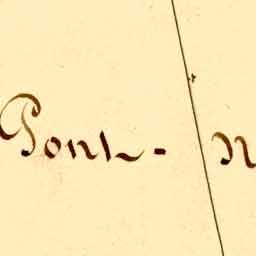 Pont- N